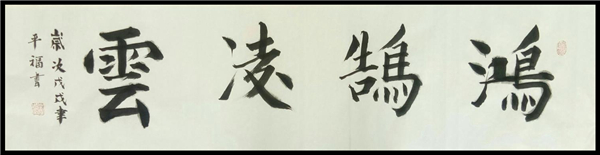 鴻鵠凌雲
歲次戊戌年
平福書